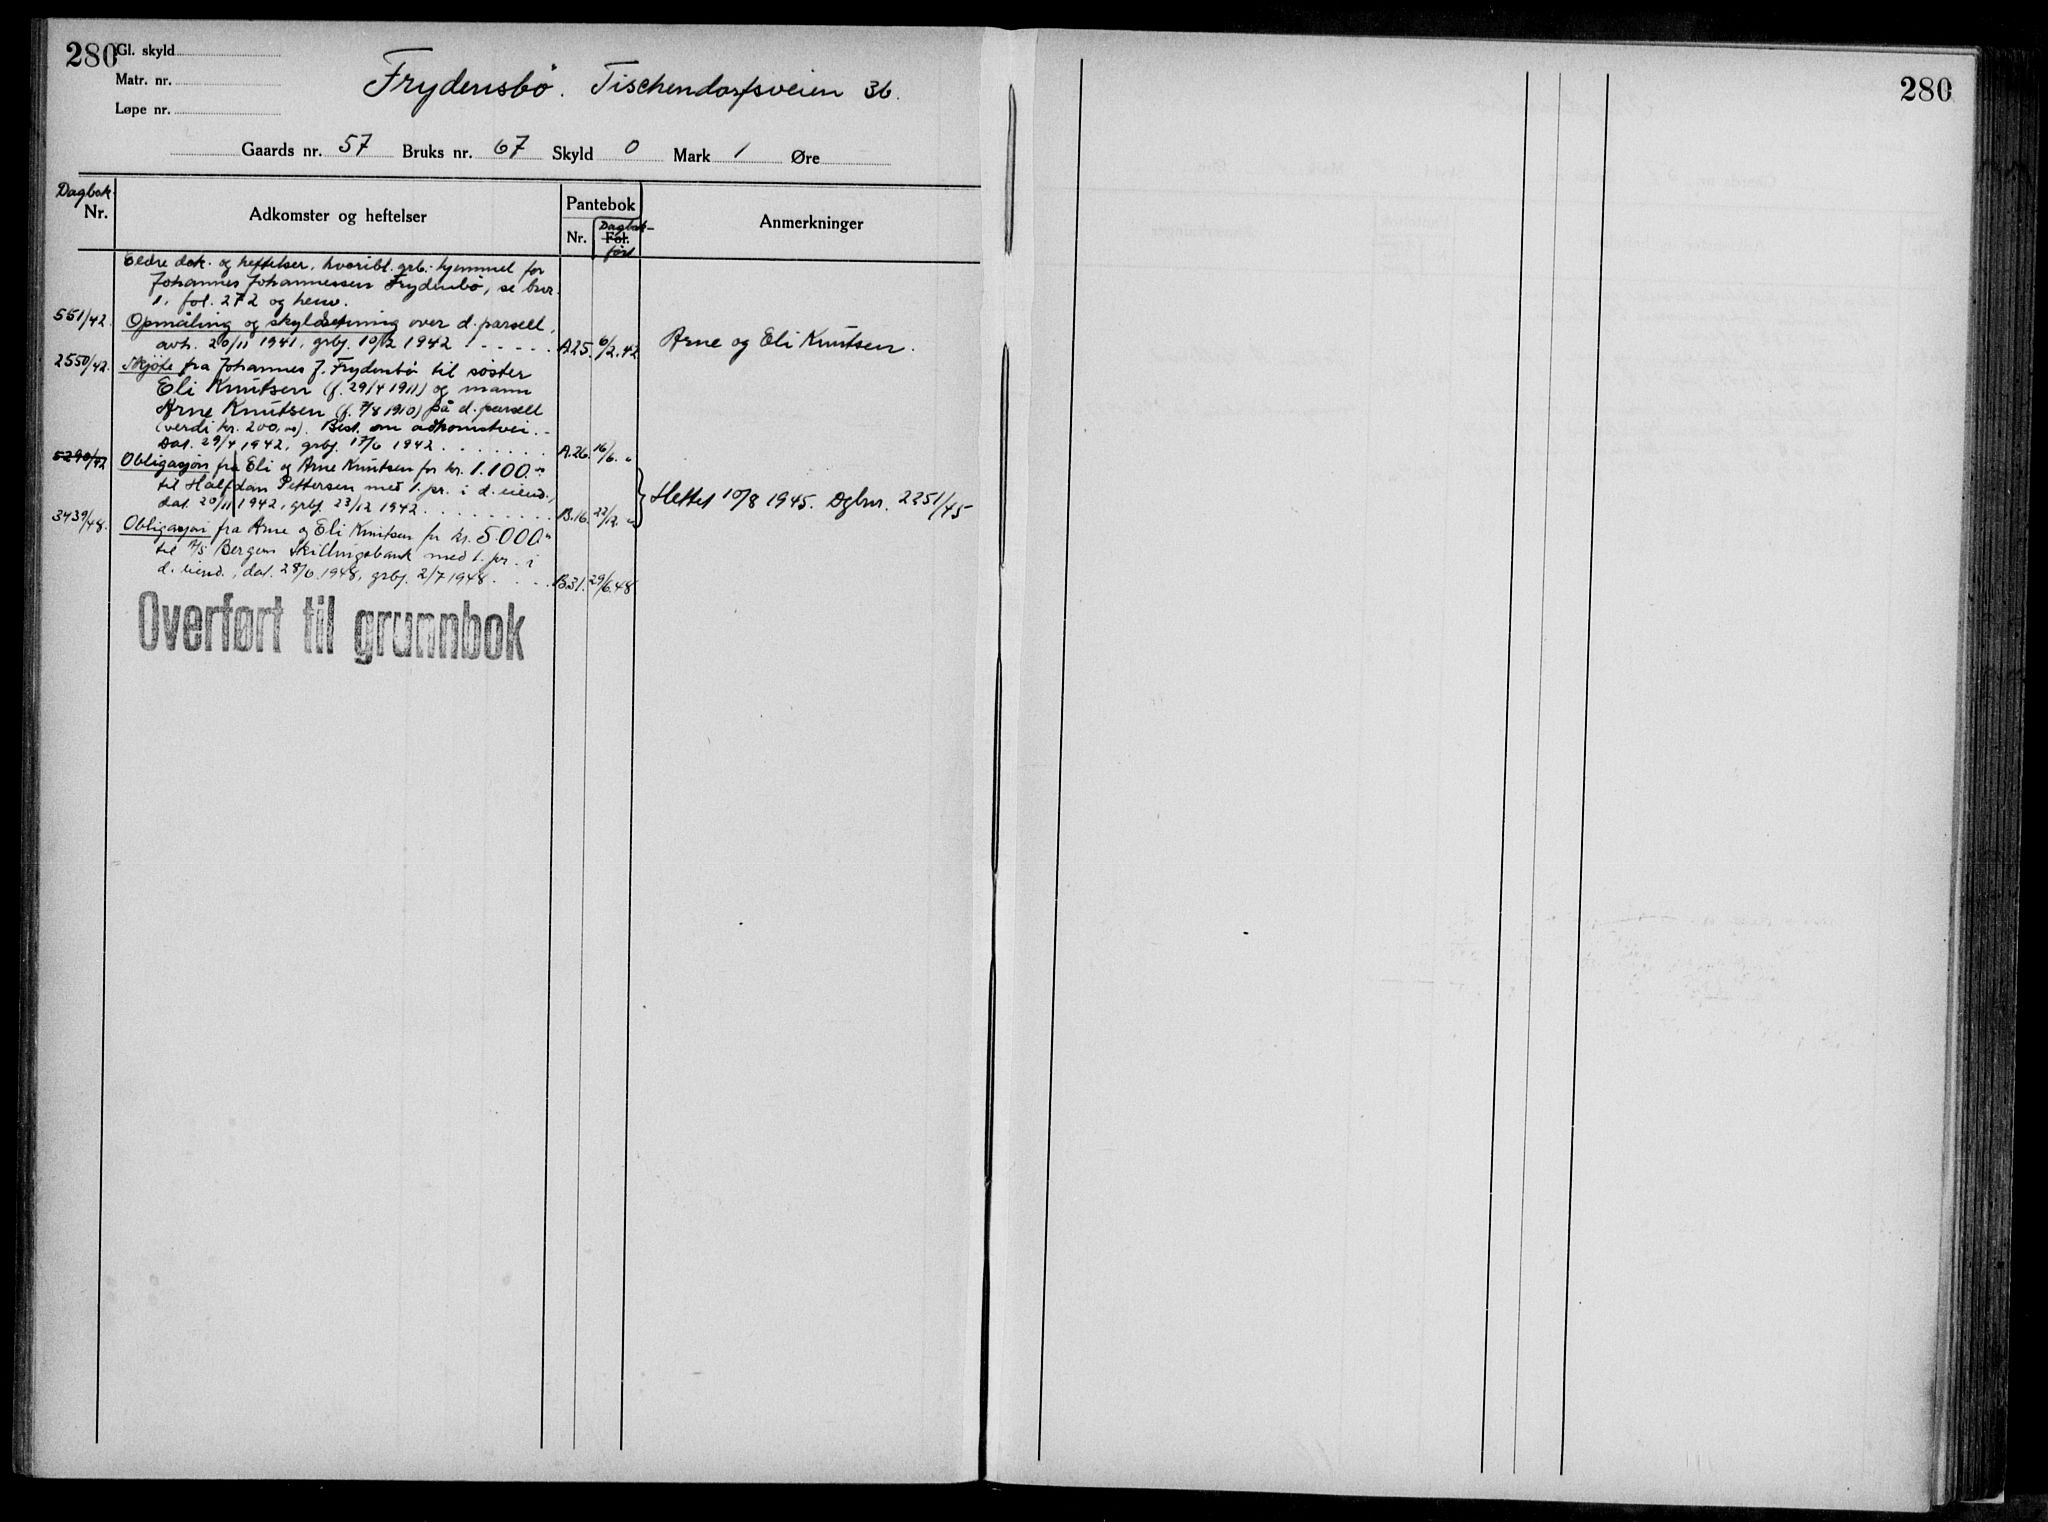 280
Gl. skyld
Matr. nr.
Løpe nr.
Frydensbö. Tischendorfsveien 36.
Gaards nr. 57 Bruks nr. 67 Skyld 0 Mark 1 Øre
Dagbok
Nr.
Adkomster og heftelser
Pantebok
Nr.
Fol.
Dagbok-
ført
Anmerkninger
Eldre dok. og heftelser, hvoribl. grb.-hjemmel for
Johannes Johannessen Frydenbö, se bnr.
1, fol. 272 og henv.
551/42. Opmåling og skyldsetning over d. parsell,
avh. 20/11 1941, grbj. 10/2 1942 . . . . . A25. 6/2.42 Arne og Eli Knutsen.
2550/42. Skjöte fra Johannes J. Frydenbö til söster
Eli Knutsen (f. 29/4 1911) og mann
Arne Knutsen (f. 7/8 1910) på d. parsell
(verdi kr. 200,00). Best. om adkomstvei. -
Dat. 29/4 1942, grbj. 17/6 1942 . . . . . . . A.26. 16/6. "
5290/42 Obligasjon fra Eli og Arne Knutsen for kr. 1.100.-
til Halfdan Pettersen med 1. pr. i d. eiend.,
dat. 20/11 1942, grbj. 23/12 1942 . . . . . . . . . B.16. 22/12. " Slettet 10/8 1945. Dgbnr. 2251/45
3439/48. Obligasjon fra Arne og Eli Knutsen for kr. 5.000.-
til A/S Bergens Skillingsbank med 1. pr. i
d. eiend., dat. 28/6 1948, grbj. 2/7 1948. . . . B.31. 29/6.48
Overført til grunnbok
280